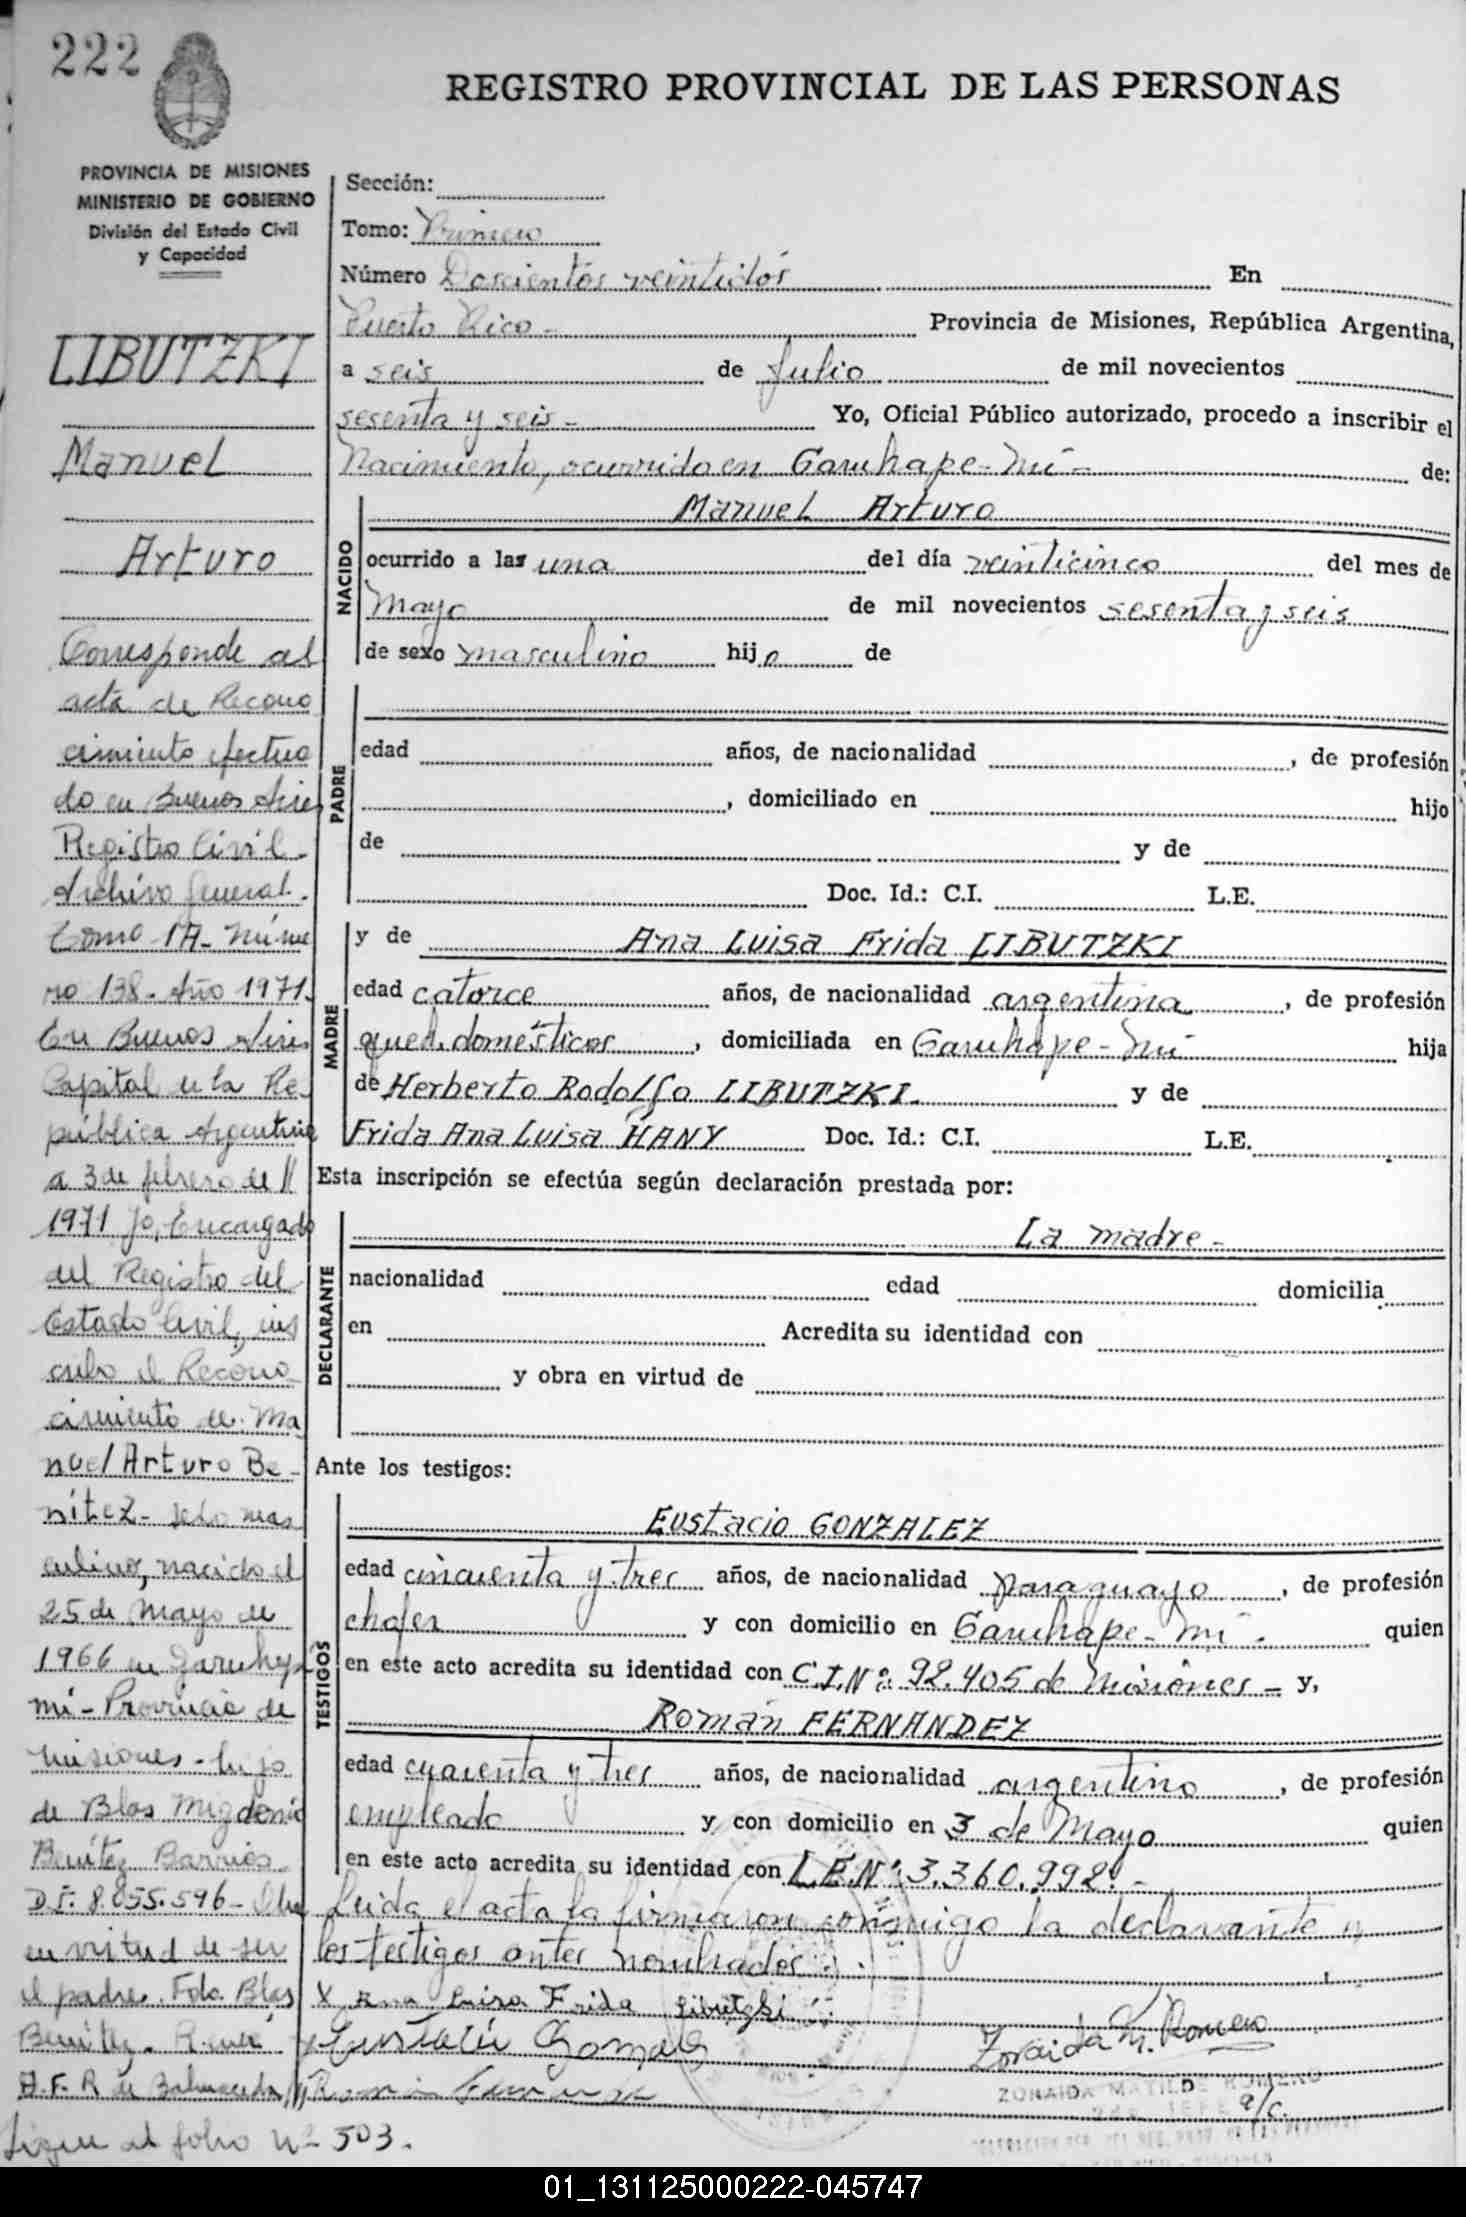 222
REGISTRO PROVINCIAL DE LAS PERSONAS
PROVINCIA DE MISIONES
MINISTERIO DE GOBIERNO
División del Estado Civil
y Capacidad
LIBUTZKI
Manuel
Arturo
Corresponde al
acta de Recono
cimiento efectua
do en Buenos Aires
Registro Civil.
Archivo General.
Tomo 1A- Núme
ro 138- Año 1971.
En Buenos Aires
Capital de la Re
pública Argentina
a 3 de febrero de //
1971 Yo, Encargado
del Registro del
Estado Civil, ins
cribo el Recono
cimiento de Ma
nuel Arturo Be-
nítez- sexo mas
culino, nacido el
25 de Mayo de
1966 en Garuhape
mí- Provincia de
Misiones- hijo
de Blas Migdonio
Benítez Barrios.
D.I. 8.055.596- Obra
en virtud de ser
el padre. Fdo. Blas
Benítez.
A.F.R de Balmaceda
Sigue al folio Nº 503.
Sección:
Tomo: Primero
Número Doscientos veintidós En
Puerto Rico- Provincia de Misiones, República Argentina,
a seis de Julio de mil novecientos
sesenta y seis- Yo, Oficial Público autorizado, procedo a inscribir el
Nacimiento, ocurrido en Garuhape-Mí- de:
NACIDO
Manuel Arturo
ocurrido a las una del día veinticinco del mes de
Mayo de mil novecientos sesenta y seis
de sexo masculino hijo de
PADRE
edad años, de nacionalidad , de profesión
, domiciliado en hijo
de y de
Doc. Id.: C.I. L.E.
MADRE
y de Ana Luisa Frida LIBUTZKI
edad catorce años, de nacionalidad argentina, de profesión
queh. domésticos, domiciliada en Garuhape-Mí hija
de Herberto Rodolfo LIBUTZKI. y de
Frida Ana Luisa HANY Doc. Id.: C.I. L.E.
Esta inscripción se efectúa según declaración prestada por:
DECLARANTE
La madre-
nacionalidad edad domicilia
en Acredita su identidad con
y obra en virtud de
Ante los testigos:
TESTIGOS
Eustacio GONZALEZ
edad cincuenta y tres años, de nacionalidad paraguayo, de profesión
chofer y con domicilio en Garuhape-Mí- quien
en este acto acredita su identidad con C.I.Nº: 92.405 de Misiones- y,
Román FERNANDEZ
edad cuarenta y tres años, de nacionalidad argentino, de profesión
empleado y con domicilio en 3 de Mayo quien
en este acto acredita su identidad con L.E.Nº: 3.360.992.-
Leida el acta la firmaron conmigo la declarante y
los testigos antes nombrados.
X Ana Luisa Frida Libutzki
Zoraida M. Romero
ZORAIDA MATILDE ROMERO
JEFE a/c.
01_131125000222-045747